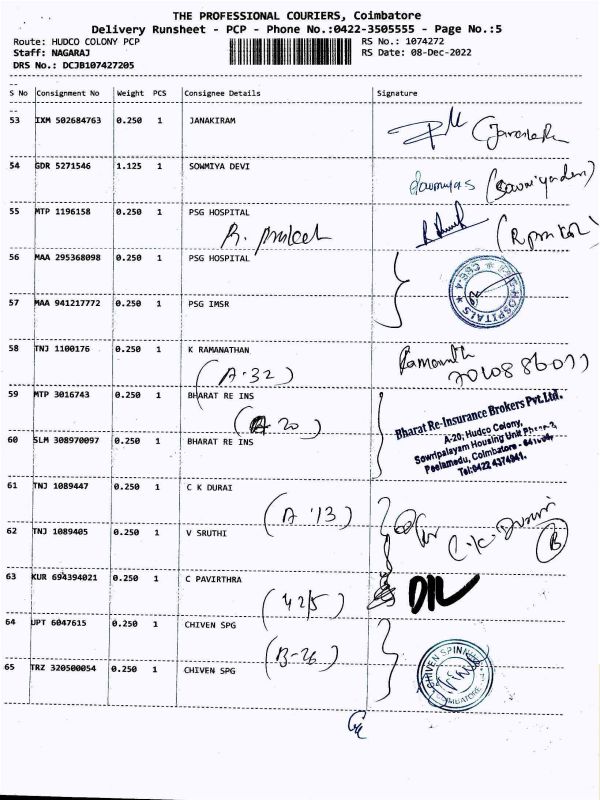 THE PROFESSIONAL COURIERS, Coimbatore
Delivery Runsheet - PCP - Phone No.:0422-3505555 - Page No.:5
Route: HUDCO COLONY PCP RS No.: 1074272
Staff: NAGARAJ RS Date: 08-Dec-2022
DRS No.: DCJB107427205
S No Consignment No Weight PCS Consignee Details Signature
53 IXM 502684763 0.250 1 JANAKIRAM
54 GDR 5271546 1.125 1 SOWMIYA DEVI
55 MTP 1196158 0.250 1 PSG HOSPITAL
56 MAA 295368098 0.250 1 PSG HOSPITAL
PSG HOSPITALS CBE-4
57 MAA 941217772 0.250 1 PSG IMSR
58 TNJ 1100176 0.250 1 K RAMANATHAN
(A-32)
59 MTP 3016743 0.250 1 BHARAT RE INS
(A-20)
Bharat Re-Insurance Brokers Pvt.Ltd.
A-20, Hudco Colony,
Sowripalayam Housing Unit
Peelamedu, Coimbatore -
Tel:0422 4374941.
60 SLM 308970097 0.250 1 BHARAT RE INS
61 TNJ 1089447 0.250 1 C K DURAI
(A-13)
62 TNJ 1089405 0.250 1 V SRUTHI
B
63 KUR 694394021 0.250 1 C PAVIRTHRA
(42/5)
64 UPT 6047615 0.250 1 CHIVEN SPG
(B-26)
65 TRZ 320500054 0.250 1 CHIVEN SPG
CHIVEN